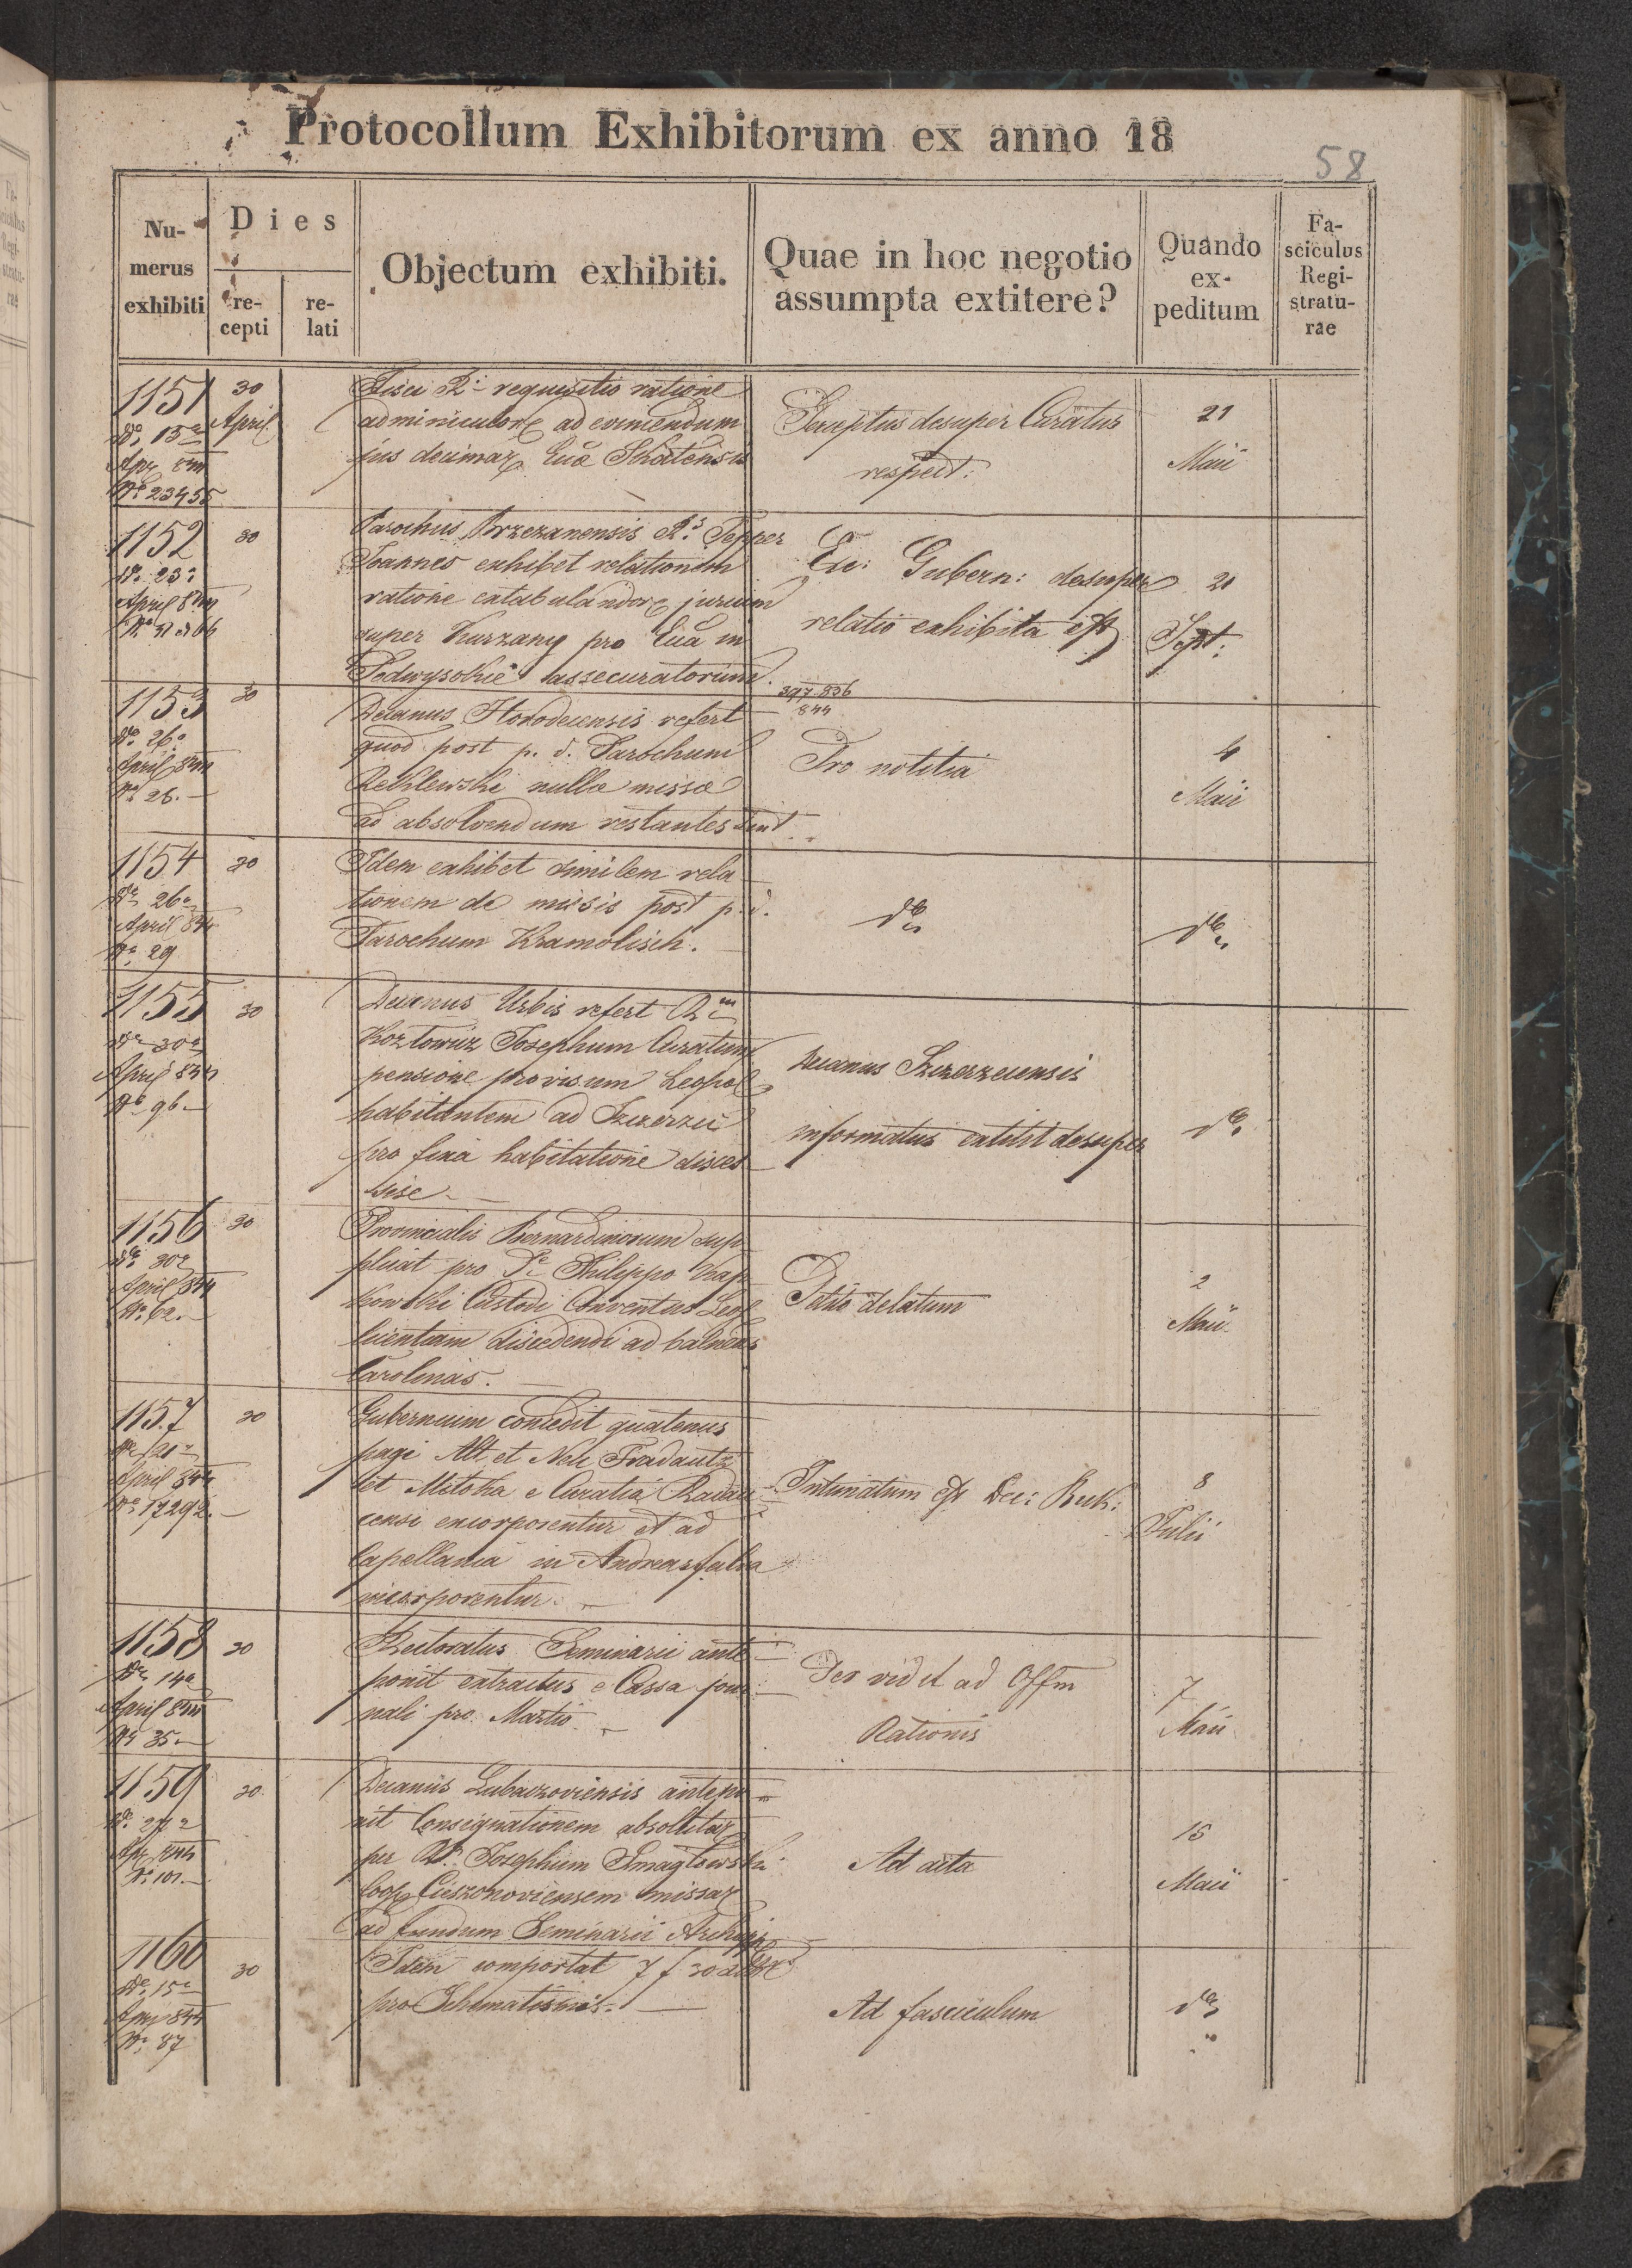 Protocollum Exhibitorum ex anno 18
58
Nu-
merus
exhibiti
Dies
re-
cepti
re-
lati
Objectum exhibiti.
Quae in hoc negotio
assumpta extitere?
Quando
ex-
peditum
Fa-
sciculus
Regi-
stratu-
rae
1151
30
April
Apr 844
No 23455
Fisci R. requisitio ratione
ad eruendum
jus decimar
desuper Curatus
respect:
21
Maii
1152
30
do 23a
April 844
Parochus Brzezanensis Rs Tepper
Joannes exhibet relationem
ratione extabulandor jurium
super Kurzany pro Eccla in
Podwysokie assecuratorum.
Exc: Gubern: desuper
relatio exhibita est
20
Sept:
1153
30
do 26a
April 844
No 28.
Decanus Horodecensis refert
quod post p. d. Parochum
nullae missae
ad absolvendum restantes sunt
397.836
844
Pro notitia
4
Maii
1154
30
do 26a
April 844
No 29
Idem exhibet similem rela
tionem de missis post p. d.
Parochum Kramolisch.
do
do
1155
30
do 30a
April 844
No 96
Decanus Urbis refert Rm
Kozlowicz Josephum Curatum
pensione provisum Leopol
habitantem ad Szczerzec
pro fixa habitatione disces
sise
Decanus Szczerzecensis
informatus extitit desuper
do
1156
30
do 30a
April 844
No 62.
Provincialis Bernardinorum sup
plicat pro Pe Philippo
Custodi Conventus Leop
licentiam discedendi ad balneas
Carolinas.
Petito delatum
2
Maii
1157
30
April 844
No 17292.
Gubernium concedit quatenus
pagi Alt et Neu Fradautz
et Mitoka e Curatia Radau
censi excorporentur et ad
Capellania in Andreasfalva
incorporentur.
Intimatum est Dec: Buk:
8
Julii
1158
30
do 14a
April 844
No 35
Rectoratus Seminarii ante
ponit extractus e Cassa jour
nali pro Martio.
Per vidit ad Offm
Rationis
7
Maii
1159
30
Apr 844
No 101.
Decanus Lubaczoviensis antepo
nit Consignationem absolutar
per R. Josephum Smaglowski
Coop Cieszanoviensem missar
ad fundum Seminarii Archipp
Ad acta
15
Maii
1160
30
do 15a
Apr 844
No 87
Idem comportat 7 f 30
pro Schematismis.
Ad fasciculum
do